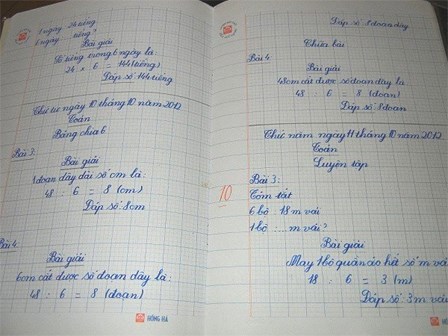 1 ngày 24 tiếng
6 ngày ... tiếng?
Bài giải
Số tiếng trong 6 ngày là:
24 x 6 = 144 (tiếng)
Đáp số: 144 tiếng
Thứ tư ngày 10 tháng 10 năm 2012
Toán
Bảng chia 6
Bài 3:
Bài giải
1 đoạn dây dài số cm là:
48 : 6 = 8 (cm)
Đáp số: 8cm
Bài 4:
Bài giải
6cm cắt được số đoạn dây là:
48 : 6 = 8 (đoạn)
HỒNG HÀ
Đáp số 8 đoạn dây
Chữa bài
Bài 4:
Bài giải
48cm cắt được số đoạn dây là:
48 : 6 = 8 (đoạn)
Đáp số: 8 đoạn
Thứ năm ngày 11 tháng 10 năm 2012
Toán
Luyện tập
Bài 3:
10
Tóm tắt
6 bộ: 18 m vải
1 bộ: ... m vải?
Bài giải
May 1 bộ quần áo hết số m vải
18 : 6 = 3 (m)
Đáp số: 3 m vải
HỒNG HÀ